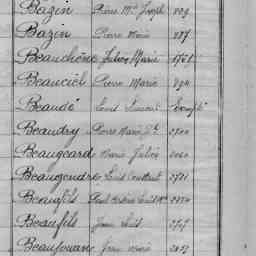 Bazin Pierre Marie Joseph 809
Bazin Pierre Marie 887
Beauchêne Julien Marie 1761
Beauciel Pierre Marie 894
Beaudé Louis Exempté
Beaudry Pierre Marie
Beaugeard Marie Julien
Beaugendre Louis Constant 2721
Beaufils Paul
Beaufils Jean Louis 2707
Beaujouan Jean Marie